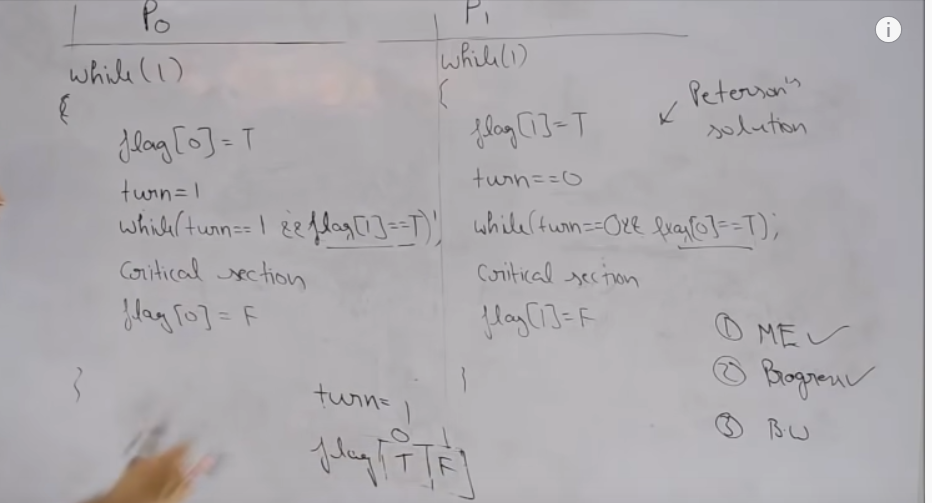 P0
while(1)
{
flag[0]=T
turn=1
while(turn==1 && flag[1]==T);
Critical section
flag[0]=F
}
P1
while(1)
{
flag[1]=T
turn==0
while(turn==0 && flag[0]==T);
Critical section
flag[1]=F
}
Peterson's
solution
① ME ✓
② Progress ✓
③ B.W
turn= 1
0 1
flag[T|F]